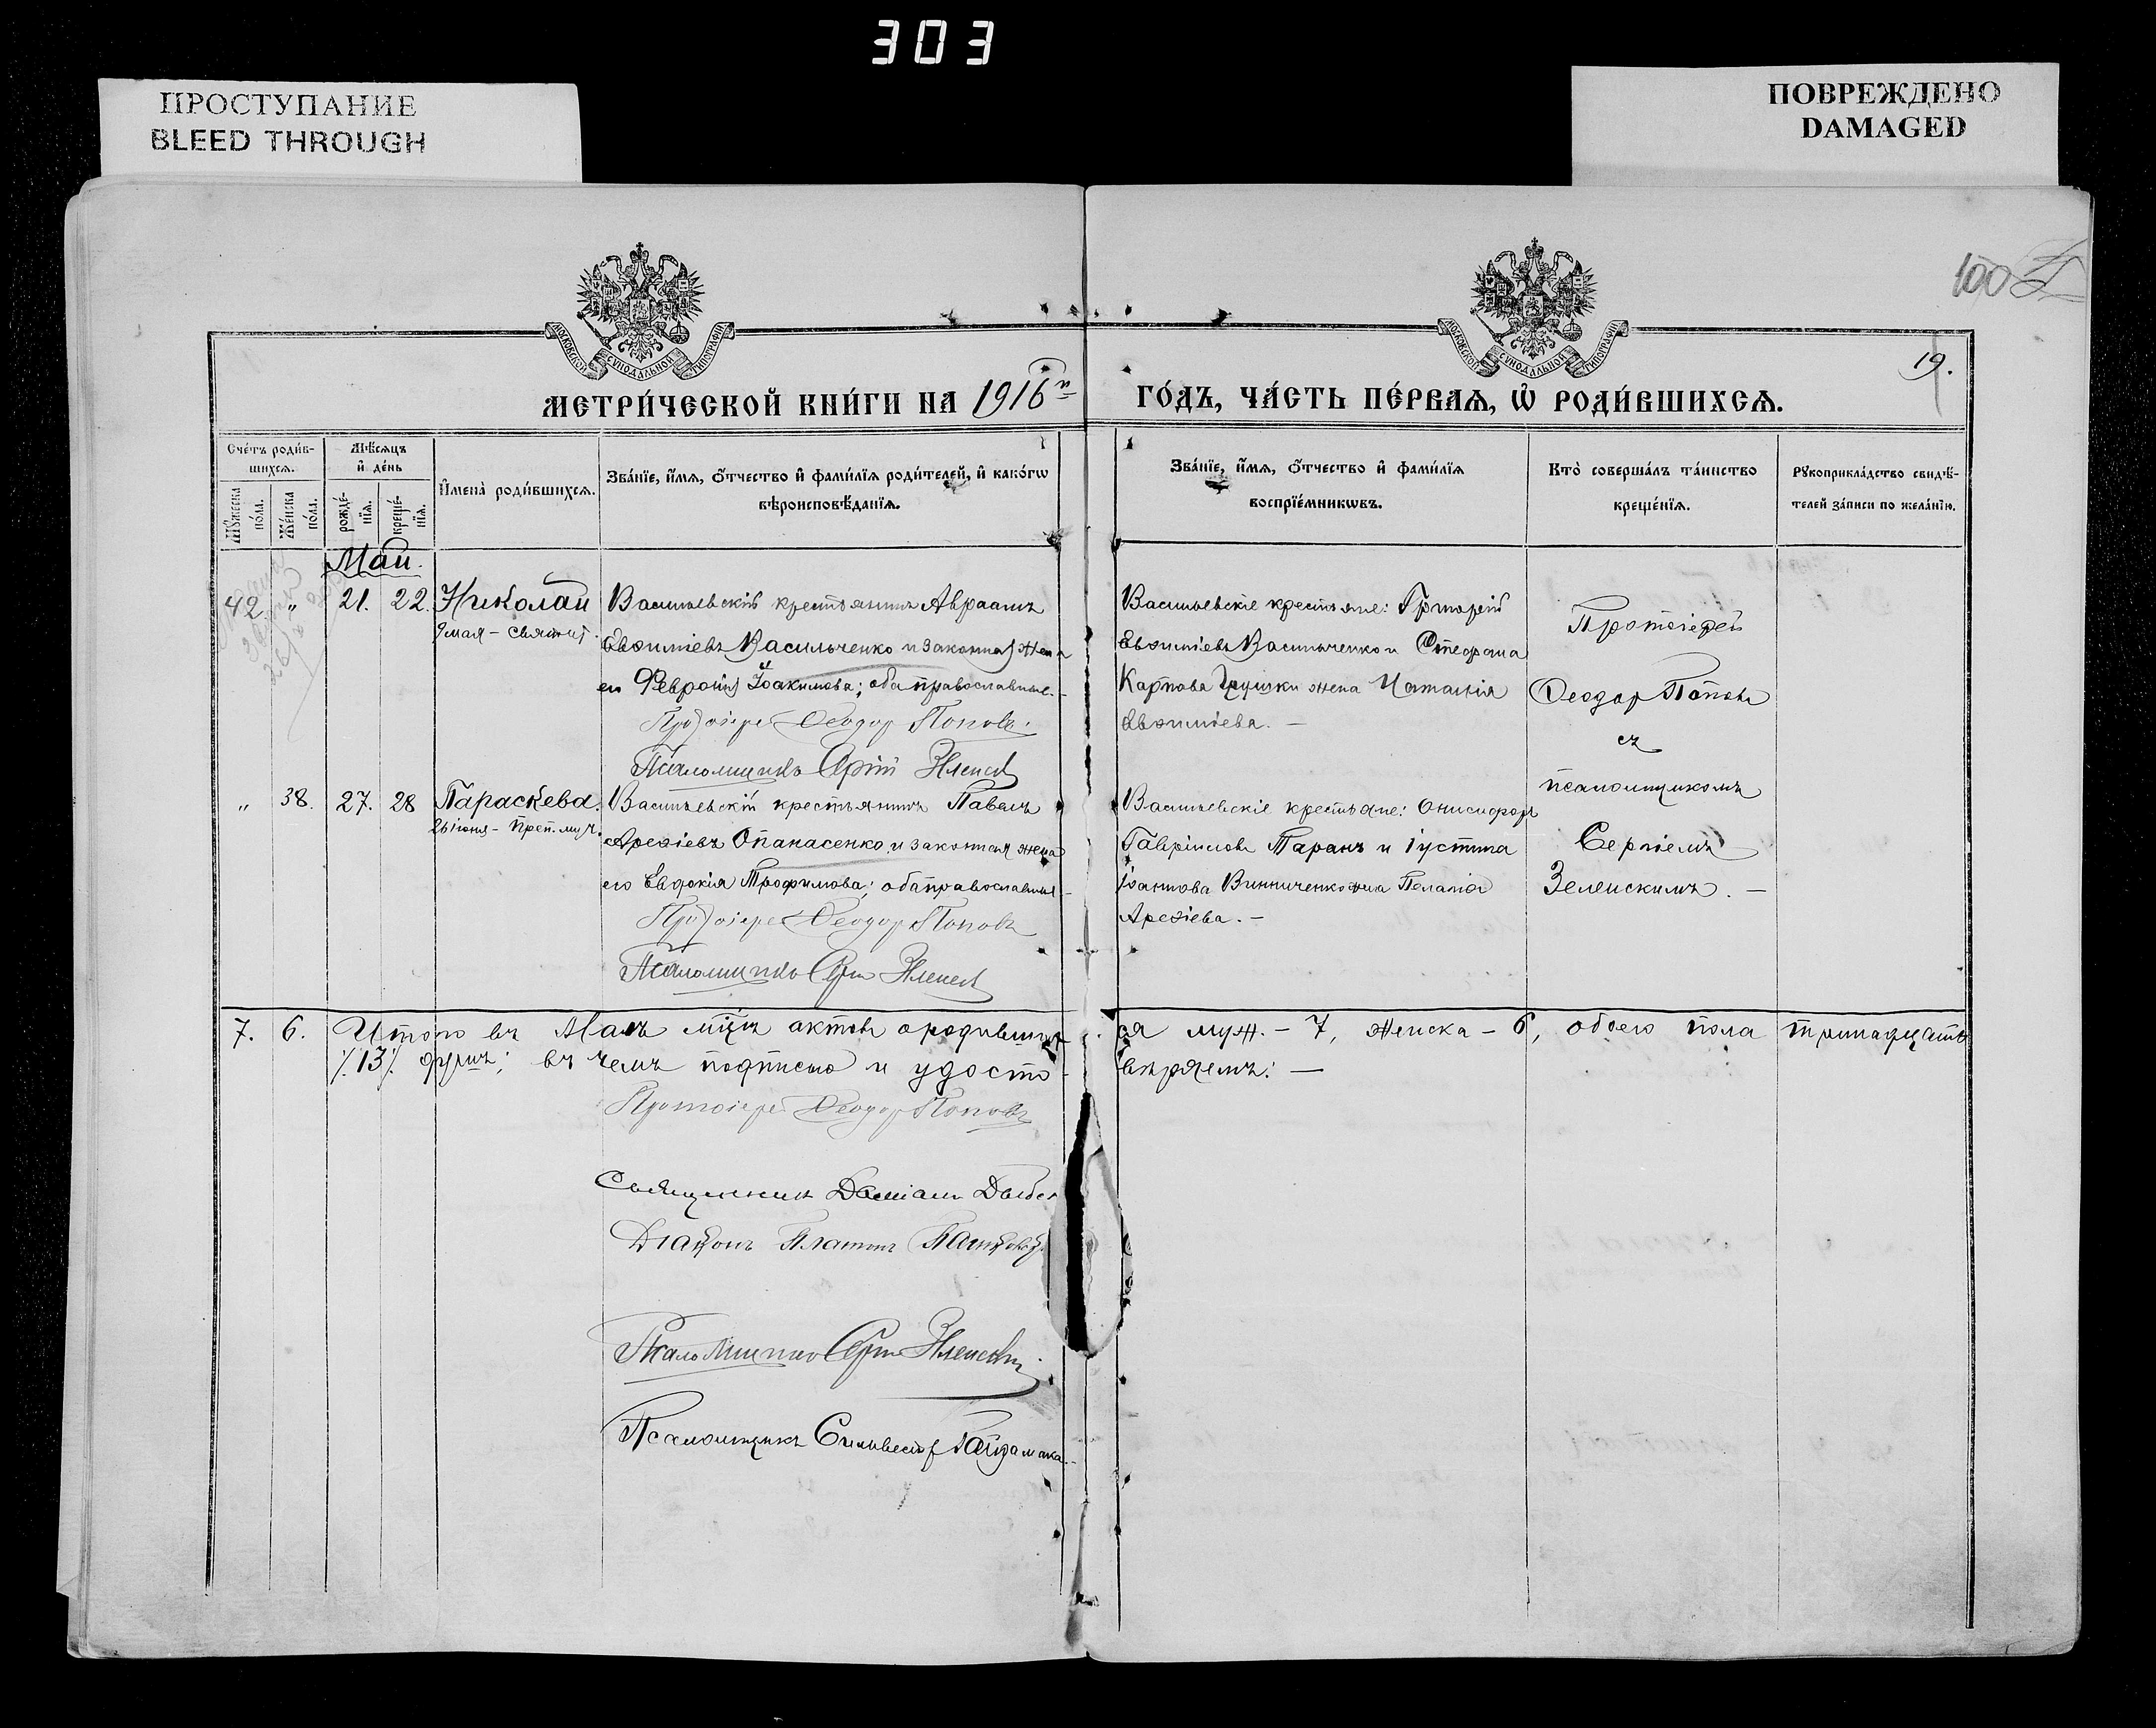 303
ПРОСТУПАНИЕ
BLEED THROUGH
ПОВРЕЖДЕНО
DAMAGED
100
19.
МОСКОВСКОЙ СѴНОДАЛЬНОЙ ТИПОГРАФІИ
МОСКОВСКОЙ СѴНОДАЛЬНОЙ ТИПОГРАФІИ
МЕТРИ́ЧЕСКОЙ КНИ́ГИ НА 1916й ГО́ДЪ, ЧА́СТЬ ПЕ́РВАѦ, Ѡ҆ РОДИ́ВШИХСѦ.
Сче́тъ роди́в-
шихсѧ.
Мѹ́жеска по́ла.
Же́нска по́ла.
Мѣ́сѧцъ
и҆ де́нь
рожде́-
нїѧ.
креще́-
нїѧ.
И҆мена̀ роди́вшихсѧ.
Зва́нїе, и҆́мѧ, ѻ҆́тчество и҆ фами́лїѧ роди́телей, и҆ како́гѡ
вѣроисповѣ́данїѧ.
Зва́нїе, и҆́мѧ, ѻ҆́тчество и҆ фами́лїѧ
воспрїе́мникѡвъ.
Кто̀ соверша́лъ та́инство
креще́нїѧ.
Рꙋкоприкла́дство свидѣ́-
телей за́писи по жела́нїю.
Май.
42 " 21. 22. Николай
9 мая - святит.
Васильевскій крестьянинъ Авраамъ
Евѳиміевъ Васильченко и законная жена
его Февронія Іоакимова; оба православные.-
Протоіерей Ѳеодор Поповъ.
Псаломщикъ Сергій Зеленскій
Васильевскіе крестьяне: Григорій
Евѳиміевъ Васильченко и Стефана
Карпова Грушки жена Наталія
Евѳиміева. -
Протоіерей
Ѳеодор Поповъ
съ
псаломщикомъ
Сергіемъ
Зеленскимъ. -
" 38. 27. 28 Параскева.
26 іюня - преп. муч.
Васильевскій крестьянинъ Павелъ
Арсѳіевъ Опанасенко и законная жена
его Евдокія Трофимова; оба православные -
Протоіерей Ѳеодор Поповъ
Псаломщикъ Сергій Зеленскій
Васильевскіе крестьяне: Онисифоръ
Гавріиловъ Таранъ и Іустина
Іоаннова Винниченко жена Пелагія
Арефіева. -
7. 6. Итого въ Маѣ мцѣ актовъ о родившихся муж. - 7, женска - 6, обоего пола тринадцать
/.13/. душъ; въ чемъ подписью и удостовѣряемъ: -
Протоіерей Ѳеодор Поповъ
Священник Даміанъ
Діаконъ Платонъ
Псаломщикъ Сергій Зеленскій.
Псаломщикъ Сильвестр Гайдамака.